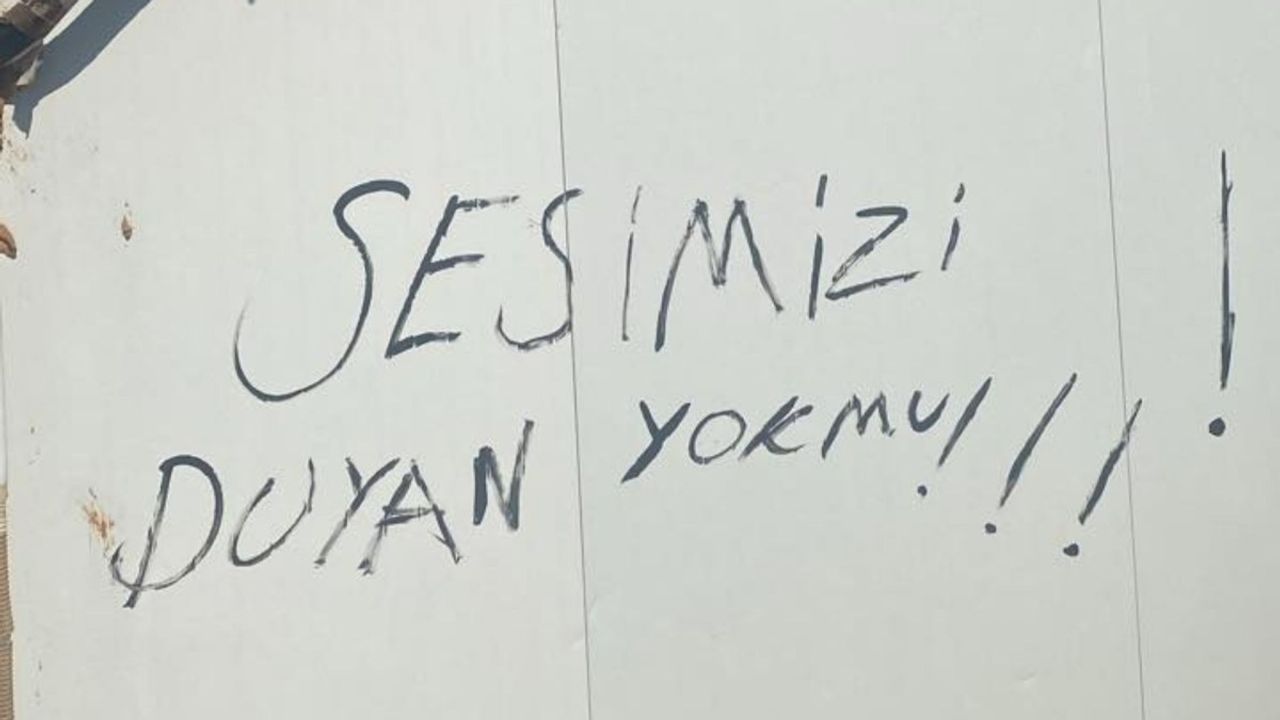 SESiMiZi !
DUYAN YOKMU!!!